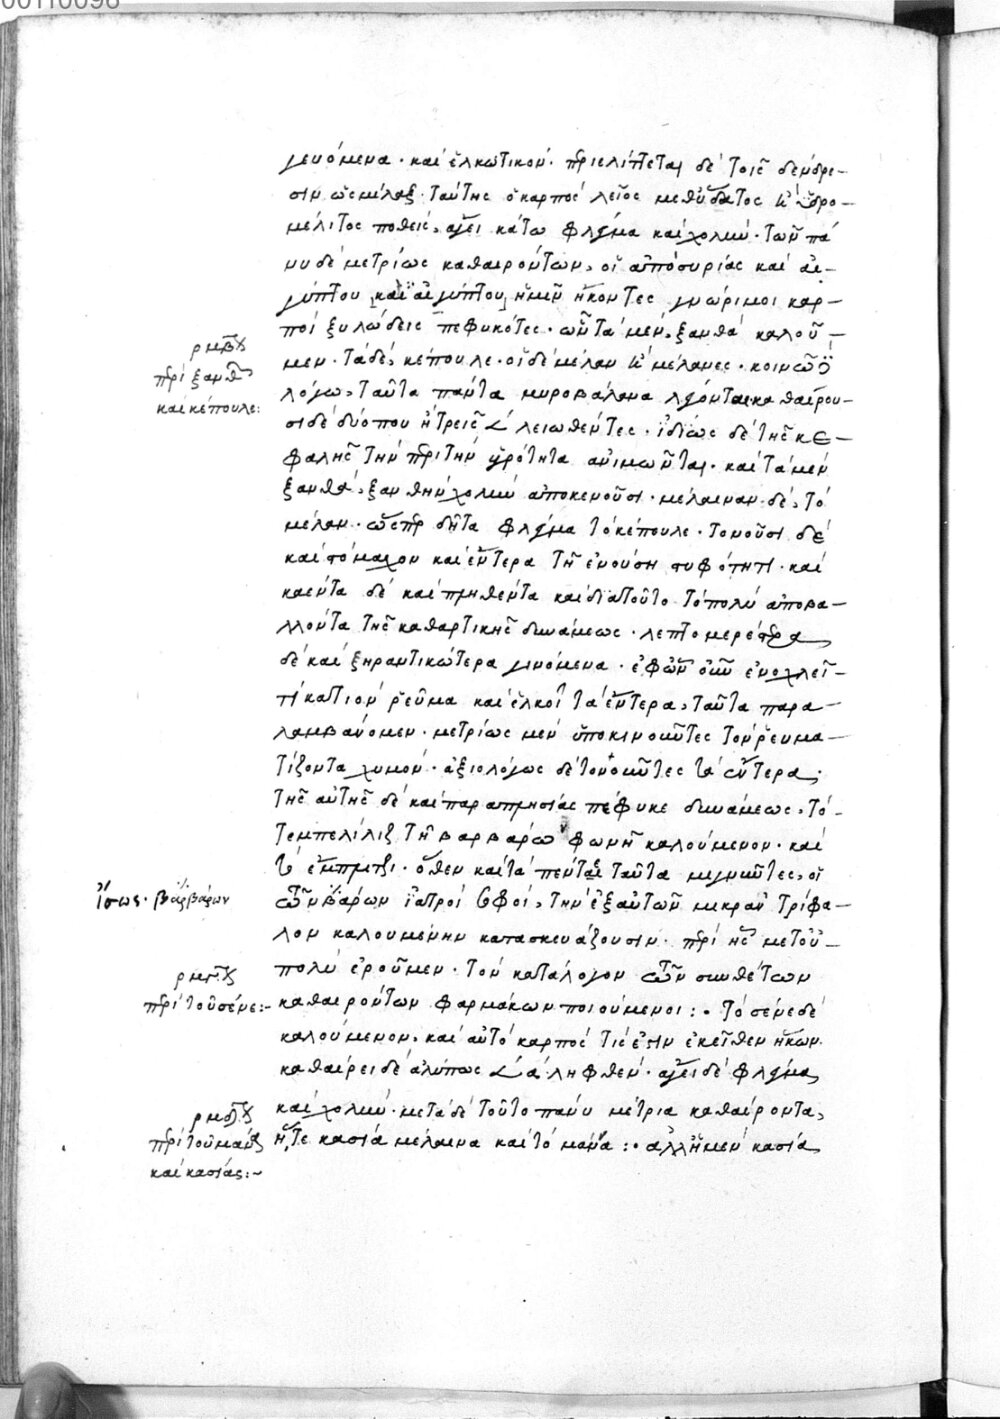 00110098
γενόμενα · καὶ ἑλκωτικόν · περιελίττεται δὲ τοῖς δένδρε-
σιν ὡς μίλαξ · ταύτης ὁ καρπὸς λεῖος μεθ' ὕδατος κ' ὑδρο-
μέλιτος ποθεὶς, ἄγει κάτω φλέγμα καὶ χολήν · τῶν πά
νυ δὲ μετρίως καθαιρόντων, οἱ ἀπὸ συρίας καὶ αἰ-
γύπτου [καὶ αἰγύπτου] ἡμῖν ἥκοντες γνώριμοι καρ-
ποὶ ξυλώδεις πεφυκότες · ὧν τὰ μὲν, ξανθὰ καλοῦ-
μεν · τὰ δὲ, κέπουλε · οἱ δὲ μέλαν κ' μέλανες · κοινῶ
ρμβον
περὶ ξανθῶν
καὶ κέπουλε:
λόγω, ταῦτα πάντα μυροβάλανα λέγονται καθαίρου-
σι δὲ δύο που ἢ τρεῖς λειωθέντες · ἰδίως δὲ τῆς κε-
φαλῆς τὴν περιττὴν ὑγρότητα ἀνιμῶνται · καὶ τὰ μὲν
ξανθὰ, ξανθὴν χολὴν ἀποκενοῦσι · μέλαιναν δὲ, τὸ
μέλαν · ὥσπερ δῆτα φλέγμα τὸ κέπουλε · τονοῦσι δὲ
καὶ στόμαχον καὶ ἔντερα τῆ ἐνούση στυφότητι · καὶ
καέντα δὲ καὶ πρησθέντα καὶ διατοῦτο τὸ πολὺ ἀποβα-
λλόντα τῆς καθαρτικῆς δυνάμεως · λεπτομερέστερα
δὲ καὶ ξηραντικώτερα γινόμενα · ἐφ' ὧν οὖν ἐνοχλεῖ-
τι κατιὸν ῥεῦμα καὶ ἑλκοῖ τὰ ἔντερα, ταῦτα παρα-
λαμβάνομεν · μετρίως μὲν ὑποκινοῦντες τὸν ῥευμα-
τίζοντα χυμόν · ἀξιολόγως δὲ τονοῦντες τὰ ἔντερα ·
τῆς αὐτῆς δὲ καὶ παραπλησίας πέφυκε δυνάμεως, τὸ
τεμπελίλιζ τῆ βαρβάρω φωνῆ καλούμενον · καὶ
τὸ ἔμπριτζι · ὅθεν καὶ τὰ πέντε ταῦτα μιγνῦντες, οἱ
ἴσως · βαρβάρων
τῶν βάρων ἰατροὶ σοφοὶ, τὴν ἐξ αὐτῶν μικρὰν τρίφα-
λον καλουμένην κατασκευάζουσιν · περὶ ἧς μετοὐ-
πολὺ ἐροῦμεν · τὸν κατάλογον τῶν συνθέτων
ρμγον
περὶ τοῦ σένε:-
καθαιρόντων φαρμάκων ποιούμενοι : · τὸ σένε δὲ
καλούμενον · καὶ αὐτὸ καρπός τίς ἐστιν ἐκεῖθεν ἥκων ·
καθαίρει δὲ ἀλύπως ληφθέν · ἄγει δὲ φλέγμα
ρμδον
καὶ χολήν · μετὰ δὲ τοῦτο πάνυ μέτρια καθαίροντα,
περὶ τοῦ μάννα
ἥ, τε κασία μέλαινα καὶ τὸ μάννα : · ἀλλ' ἡ μὲν κασία
καὶ κασίας:~